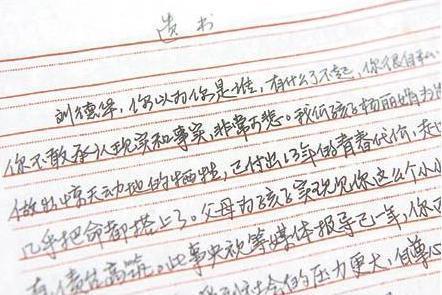 遗书
刘德华，你以为你是谁，有什么了不起，你很自私
你不敢承认现实和事实，非常可悲。我们孩子杨丽娟为您
做出惊天动地的牺牲，已付出13年的青春代价，走
几乎把命都搭上了。父母为孩子实现见你这么个小小
债台高筑。此事央视等媒体报导已一年，你
社会的压力更大，自尊